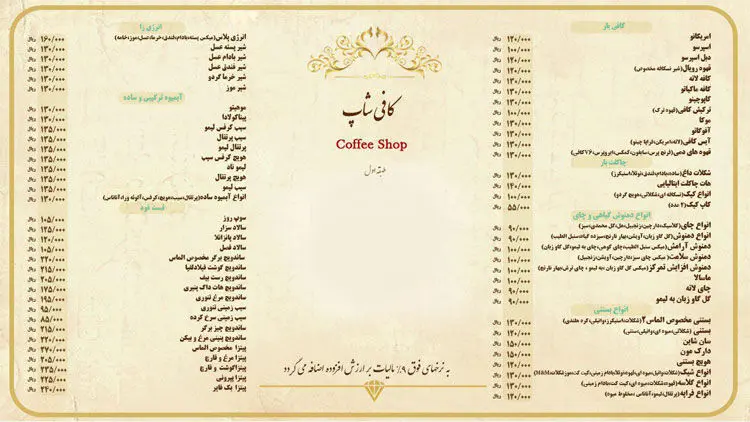 کافی شاپ
Coffee Shop
طبقه اول
کافی بار
آمریکانو ۱۲۰/۰۰۰ ریال
اسپرسو ۱۰۰/۰۰۰ ریال
دبل اسپرسو ۱۲۰/۰۰۰ ریال
قهوه رویال(شیر نسکافه مخصوص) ۱۲۰/۰۰۰ ریال
کافه لاته ۱۳۰/۰۰۰ ریال
کافه ماکیاتو
کاپوچینو
ترکیش کافی(قهوه ترک)
موکا
آفوگاتو
آیس کافی(لاته،امریکن،فراپا چینو)
قهوه های دمی
چاکلت بار
شکلات داغ ۱۳۰/۰۰۰ ریال
هات چاکلت ایتالیایی ۱۴۰/۰۰۰ ریال
انواع کیک(نسکافه ای،شکلاتی،هویج گردو) ۱۰۰/۰۰۰ ریال
کاپ کیک(۲ عدد) ۵۵/۰۰۰ ریال
انواع دمنوش گیاهی و چای
انواع چای ۹۰/۰۰۰ ریال
انواع دمنوش ۹۰/۰۰۰ ریال
دمنوش آرامش ۱۰۰/۰۰۰ ریال
دمنوش سلامت ۱۰۰/۰۰۰ ریال
دمنوش افزایش تمرکز ۱۰۰/۰۰۰ ریال
ماسالا ۱۰۰/۰۰۰ ریال
چای لاته ۹۰/۰۰۰ ریال
گل گاو زبان به لیمو ۹۰/۰۰۰ ریال
انواع بستنی
بستنی مخصوص الماس ۱۳۰/۰۰۰ ریال
بستنی ۱۲۰/۰۰۰ ریال
سان شاین ۱۵۰/۰۰۰ ریال
دارک مون ۱۵۰/۰۰۰ ریال
هویج بستنی ۱۲۰/۰۰۰ ریال
انواع شیک ۱۳۰/۰۰۰ ریال
انواع گلاسه ۱۳۰/۰۰۰ ریال
انواع فراپه(پرتقال،لیمو،آناناس،مخلوط میوه) ۱۲۰/۰۰۰ ریال
انرژی زا
انرژی پلاس(میکس پسته،بادام،فندق،خرما،عسل،موز،خامه) ۱۶۰/۰۰۰ ریال
شیر پسته عسل ۱۳۰/۰۰۰ ریال
شیر بادام عسل ۱۳۰/۰۰۰ ریال
شیر فندق عسل ۱۳۰/۰۰۰ ریال
شیر خرما گردو ۱۳۰/۰۰۰ ریال
شیر موز ۱۳۰/۰۰۰ ریال
آبمیوه ترکیبی و ساده
موهیتو ۱۳۰/۰۰۰ ریال
پیناکولادا ۱۳۰/۰۰۰ ریال
سیب کرفس لیمو ۱۳۵/۰۰۰ ریال
سیب پرتقال ۱۳۵/۰۰۰ ریال
پرتقال لیمو ۱۳۵/۰۰۰ ریال
هویج کرفس سیب ۱۳۵/۰۰۰ ریال
لیمو ناد ۱۳۵/۰۰۰ ریال
هویج پرتقال ۱۳۵/۰۰۰ ریال
سیب لیمو ۱۳۵/۰۰۰ ریال
انواع آبمیوه ساده(پرتقال،سیب،هویج،کرفس،آلوئه ورا،آناناس) ۱۳۰/۰۰۰ ریال
فست فود
سوپ روز ۱۰۵/۰۰۰ ریال
سالاد سزار ۱۲۵/۰۰۰ ریال
سالاد پانزانلا ۱۲۰/۰۰۰ ریال
سالاد فصل ۱۰۵/۰۰۰ ریال
ساندویچ برگر مخصوص الماس ۲۲۰/۰۰۰ ریال
ساندویچ گوشت فیلادلفیا ۲۱۵/۰۰۰ ریال
ساندویچ رست بیف ۲۰۵/۰۰۰ ریال
ساندویچ هات داگ پنیری ۱۷۵/۰۰۰ ریال
ساندویچ مرغ تنوری ۱۹۵/۰۰۰ ریال
سیب زمینی تنوری ۹۵/۰۰۰ ریال
سیب زمینی سرخ کرده ۸۵/۰۰۰ ریال
ساندویچ چیز برگر ۲۱۵/۰۰۰ ریال
ساندویچ پنینی مرغ و بیکن ۲۲۰/۰۰۰ ریال
پیتزا مخصوص الماس ۲۷۰/۰۰۰ ریال
پیتزا مرغ و قارچ ۲۰۵/۰۰۰ ریال
پیتزاگوشت و قارچ ۲۳۵/۰۰۰ ریال
پیتزا پپرونی ۲۲۵/۰۰۰ ریال
پیتزا بک فایر ۲۴۰/۰۰۰ ریال
به نرخهای فوق ۹٪ مالیات بر ارزش افزوده اضافه می گردد